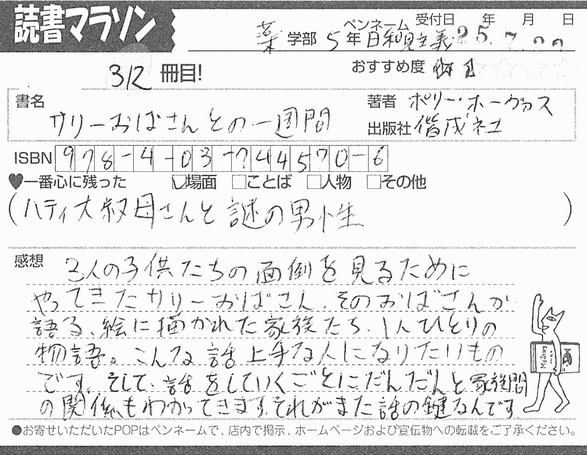 読書マラソン
薬学部 5年 ペンネーム 日和見主義 受付日 年 月 日
25.7.
312冊目!
おすすめ度
書名 サリーおばさんとの一週間
著者 ポリー・ホーヴァス
出版社 偕成社
ISBN 978-4-03-744570-6
♥一番心に残った ☑場面 □ことば □人物 □その他
(ハティ大叔母さんと謎の男性)
感想 3人の子供たちの面倒を見るために
やってきたサリーおばさん、そのおばさんが
語る、絵に描かれた家族たち、1人ひとりの
物語。こんな話上手な人になりたいもの
です。そして、話をしていくごとにだんだんと家族間
の関係もわかってきます。それがまた話の鍵なんです
●お寄せいただいたPOPはペンネームで、店内で掲示、ホームページおよび宣伝物への転載をご了承ください。